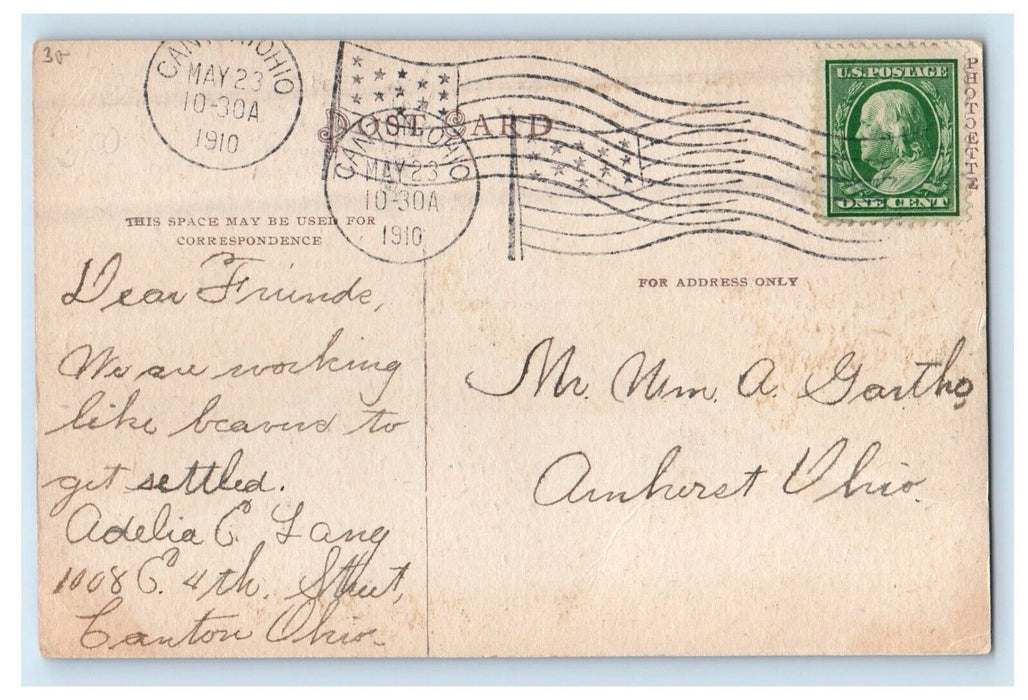 30
CANTON, OHIO
MAY 23
10-30A
1910
CANTON, OHIO
MAY 23
10-30A
1910
POST CARD
U.S. POSTAGE
ONE CENT
PHOTOETTE
THIS SPACE MAY BE USED FOR
CORRESPONDENCE
FOR ADDRESS ONLY
Dear Friends,
We are working
like beavers to
get settled.
Adelia E. Lang
1008 E. 4th. Street,
Canton Ohio.
Mr. Wm. A.
Amherst Ohio.